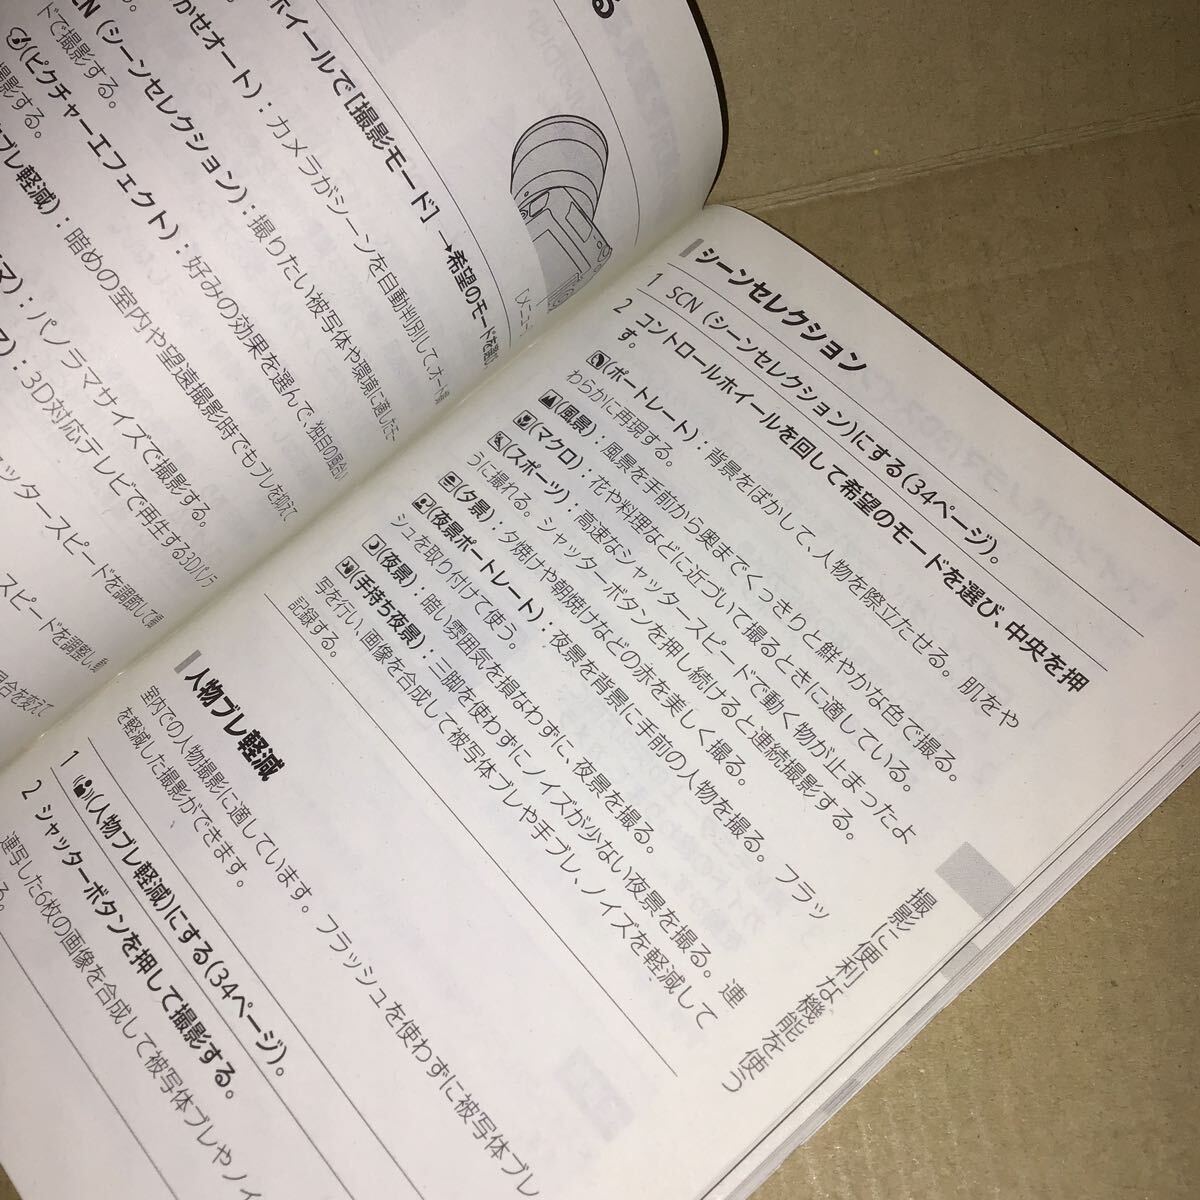 ホイールで［撮影モード］→希望のモードを選
かせオート）：カメラがシーンを自動判別して、オート
（シーンセレクション）：撮りたい被写体や環境に適したモー
ドで撮影する。
（ピクチャーエフェクト）：好みの効果を選んで、独自の風合い
影する。
ブレ軽減）：暗めの室内や望遠撮影時でもブレを抑えて
：パノラマサイズで撮影する。
：3D対応テレビで再生する3Dパノラ
ッタースピードを調節して
スピードを調整し
合を変えて
［メニュー
シーンセレクション
1 SCN（シーンセレクション）にする（34ページ）。
2 コントロールホイールを回して希望のモードを選び、中央を押
す。
（ポートレート）：背景をぼかして、人物を際立たせる。肌をや
わらかに再現する。
（風景）：風景を手前から奥までくっきりと鮮やかな色で撮る。
（マクロ）：花や料理などに近づいて撮るときに適している。
（スポーツ）：高速なシャッタースピードで動く物が止まったよ
うに撮れる。シャッターボタンを押し続けると連続撮影する。
（夕景）：夕焼けや朝焼けなどの赤を美しく撮る。
（夜景ポートレート）：夜景を背景に手前の人物を撮る。フラッ
シュを取り付けて使う。
（夜景）：暗い雰囲気を損なわずに、夜景を撮る。
（手持ち夜景）：三脚を使わずにノイズが少ない夜景を撮る。連
写を行い、画像を合成して被写体ブレや手ブレ、ノイズを軽減して
記録する。
人物ブレ軽減
室内での人物撮影に適しています。フラッシュを使わずに被写体ブレ
を軽減した撮影ができます。
1 （人物ブレ軽減）にする（34ページ）。
2 シャッターボタンを押して撮影する。
連写した6枚の画像を合成して被写体ブレやノイ
る。
撮影に便利な機能を使う